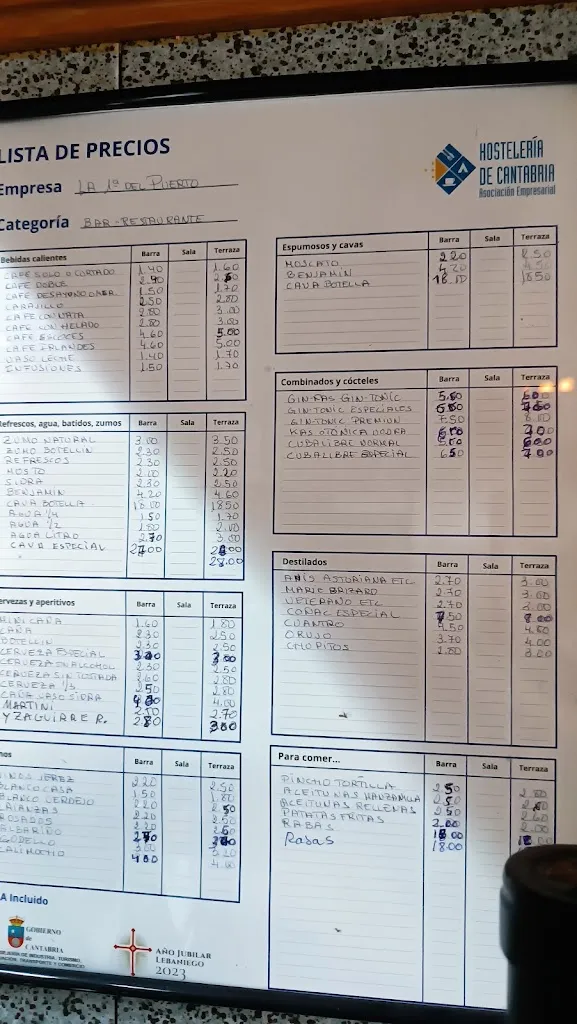 LISTA DE PRECIOS
Empresa LA 1ª DEL PUERTO
Categoría BAR-RESTAURANTE
HOSTELERÍA
DE CANTABRIA
Asociación Empresarial
Bebidas calientes Barra Sala Terraza
CAFE SOLO O CORTADO 1.40 1.60
CAFE DOBLE
CAFE DESAYUNO 1.50 1.70
CARAJILLO 2.50 2.80
CAFE CON NATA 2.80 3.00
CAFE CON HELADO 2.80 3.00
CAFE ESCOCES 4.60 5.00
CAFE IRLANDES 4.60 5.00
VASO LECHE 1.40 1.70
INFUSIONES 1.50 1.70
Refrescos, agua, batidos, zumos Barra Sala Terraza
ZUMO NATURAL 3.00 3.50
ZUMO BOTELLIN 2.30 2.50
REFRESCOS 2.30 2.50
MOSTO 2.00 2.20
SIDRA 2.30 2.50
BENJAMIN 4.20 4.60
CAVA BOTELLA 18.00 18.50
AGUA 1/4 1.50 1.70
AGUA 1/2 1.80 2.00
AGUA LITRO 2.70 3.00
CAVA ESPECIAL
28.00
ervezas y aperitivos Barra Sala Terraza
MINI CAÑA 1.60 1.80
CAÑA 2.30 2.50
BOTELLIN 2.30 2.50
CERVEZA ESPECIAL
CERVEZA SIN ALCOHOL 2.30 2.50
CERVEZA SIN TOSTADA 2.60 2.80
CERVEZA 1/3 2.50 2.80
CAÑA VASO SIDRA 4.00
MARTINI 2.70
YZAGUIRRE R. 2.80 3.00
nos Barra Sala Terraza
VINOS JEREZ 2.20 2.50
BLANCO CASA 1.50 1.80
BLANCO VERDEJO 2.20
CRIANZAS 2.20 2.50
ROSADOS 2.20
ALBARIÑO
GODELLO 3.00 3.20
CALIMOCHO 4.00
A Incluido
GOBIERNO
de
CANTABRIA
AÑO JUBILAR
LEBANIEGO
2023
Espumosos y cavas Barra Sala Terraza
MOSCATO 2.20 2.50
BENJAMIN 4.20
CAVA BOTELLA 18.00 18.50
Combinados y cócteles Barra Sala Terraza
GIN-KAS GIN-TONIC 5.80
GIN-TONIC ESPECIALES
GIN-TONIC PREMIUN 7.50 8.00
KAS O TONICA VODKA 7.00
CUBALIBRE NORMAL 6.00
CUBALIBRE ESPECIAL 6.50 7.00
Destilados Barra Sala Terraza
ANIS ASTURIANA ETC 2.70 3.00
MARIE BRIZARD 2.70 3.00
VETERANO ETC 2.70 3.00
COÑAC ESPECIAL 7.50 8.00
CUANTRO 4.50
ORUJO 3.70 4.00
CHUPITOS 2.80 3.00
Para comer... Barra Sala Terraza
PINCHO TORTILLA 2.50 2.80
ACEITUNAS MANZANILLA 2.50
ACEITUNAS RELLENAS 2.50 2.60
PATATAS FRITAS 2.00
RABAS 18.00
Rabas 18.00